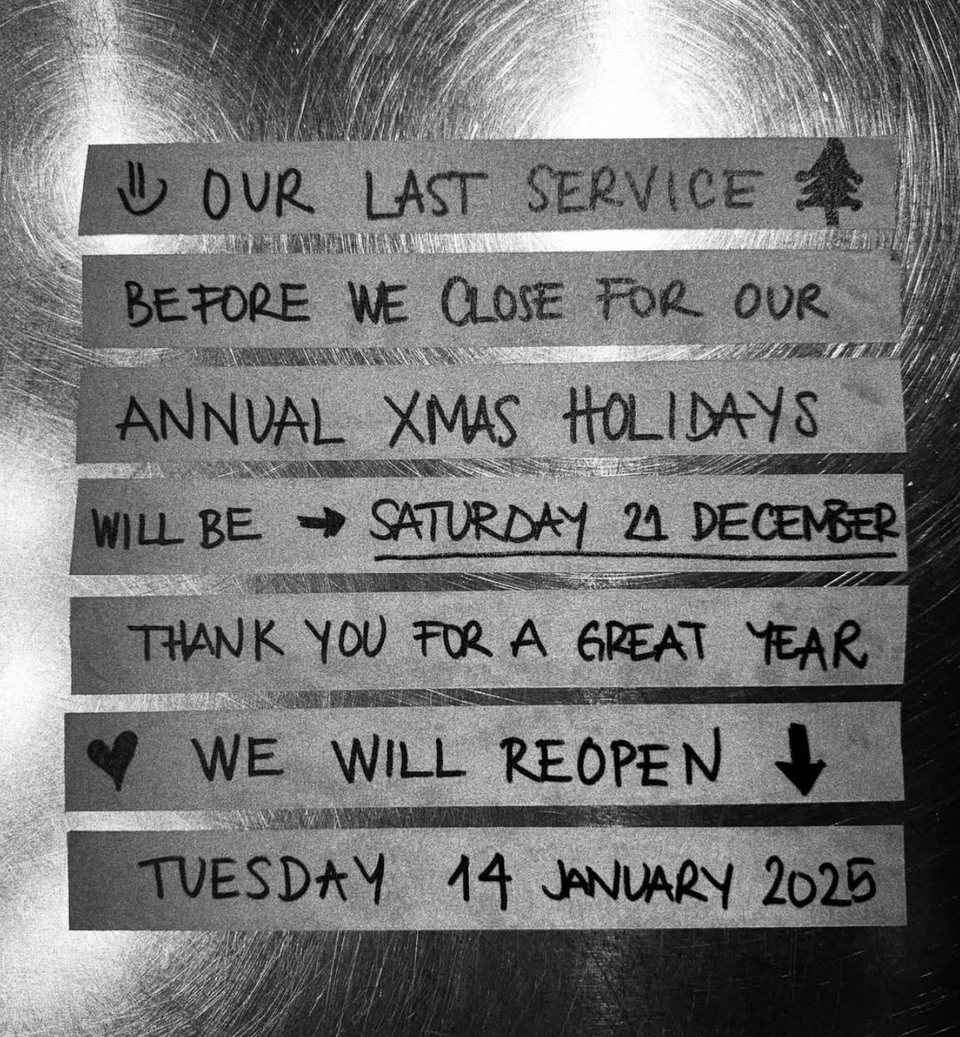 OUR LAST SERVICE
BEFORE WE CLOSE FOR OUR
ANNUAL XMAS HOLIDAYS
WILL BE → SATURDAY 21 DECEMBER
THANK YOU FOR A GREAT YEAR
♥ WE WILL REOPEN ↓
TUESDAY 14 JANUARY 2025